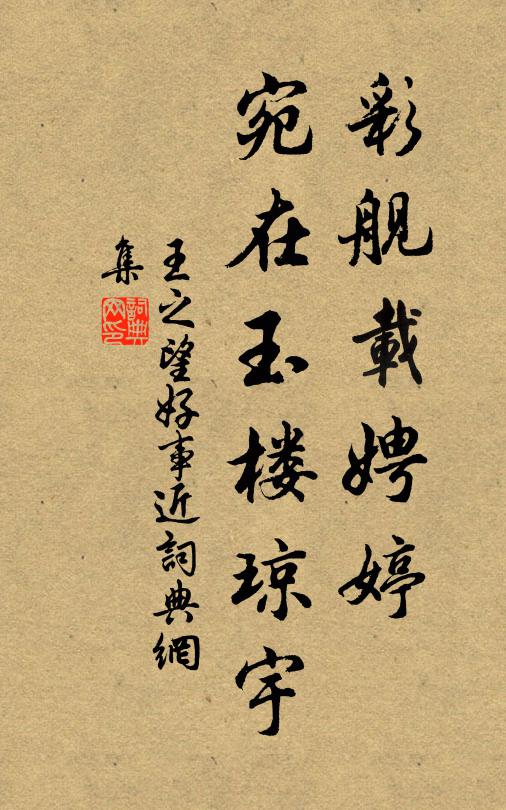 彩舰載娉婷
宛在玉楼琼宇
王之望好事近詞典網
集
詞典網印